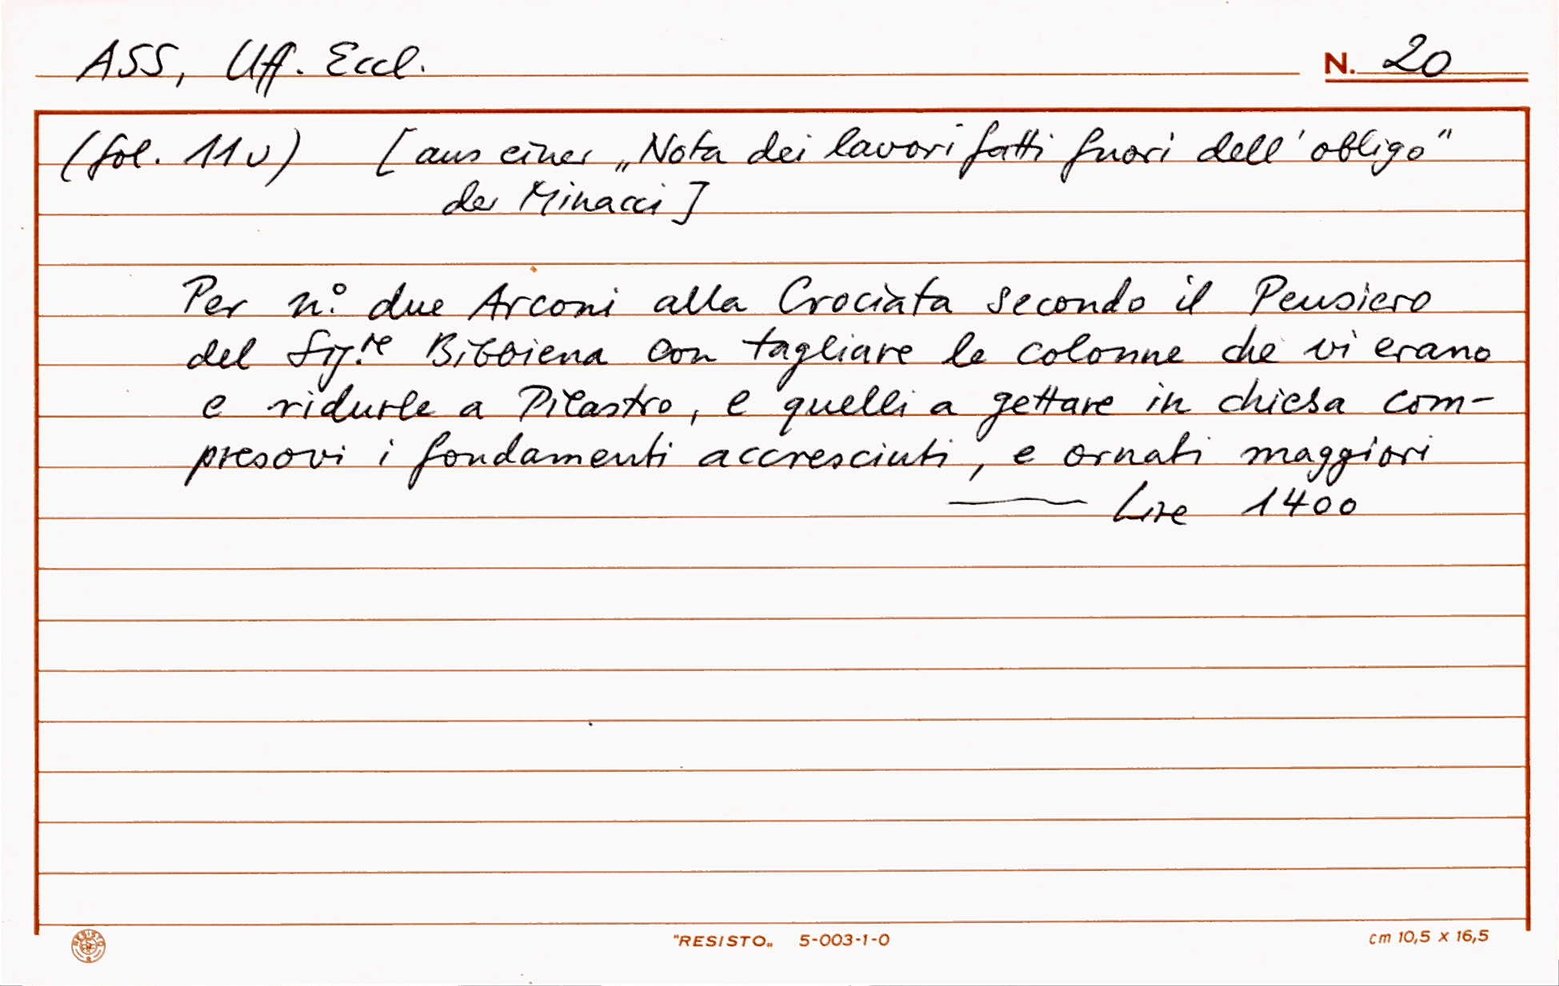 ASS, Uff. Eccl.
N. 20
(fol. 11v) [aus einer „Nota dei lavori fatti fuori dell'obligo"
des Minacci]
Per n.° due Arconi alla Crociata secondo il Pensiero
del Sig.re Bibbiena con tagliare le colonne che vi erano
e ridurle a Pilastro, e quelli a gettare in chiesa com-
presovi i fondamenti accresciuti, e ornati maggiori
—— Lire 1400
RESISTO
"RESISTO„ 5-003-1-0
cm 10,5 x 16,5